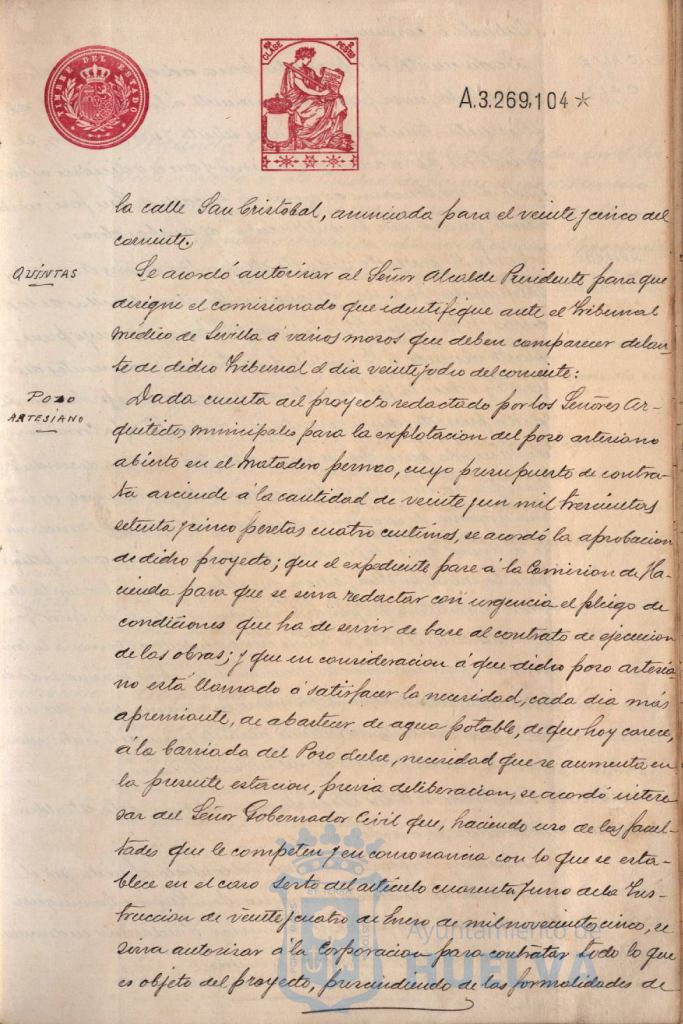 TIMBRE DEL ESTADO
CLASE
PESETAS
A.3.269,104*
la calle San Cristobal, anunciada para el veinte y cinco del
corriente.
QUINTAS
Se acordó autorizar al Señor Alcalde Presidente para que
designe el comisionado que identifique ante el Tribunal
Medico de Sevilla á varios mozos que deben comparecer delan-
te de dicho Tribunal el dia veinte y ocho del corriente:
POZO
ARTESIANO
Dada cuenta del proyecto redactado por los Señores Ar-
quitectos municipales para la explotacion del pozo artesiano
abierto en el Matadero perneo, cuyo presupuesto de contra-
ta asciende á la cantidad de veinte y un mil trescientas
setenta y cinco pesetas cuatro centimos, se acordó la aprobacion
de dicho proyecto; que el expediente pase á la Comision de Ha-
cienda para que se sirva redactar con urgencia el pliego de
condiciones que ha de servir de base al contrato de ejecucion
de las obras; y que en consideracion á que dicho pozo artesia-
no está llamado á satisfacer la necesidad, cada dia más
apremiante, de abastecer de agua potable, de que hoy carece,
á la barriada del Pozo dulce, necesidad que se aumenta en
la presente estacion, previa deliberacion, se acordó intere-
sar del Señor Gobernador Civil que, haciendo uso de las facul-
tades que le competen y en consonancia con lo que se esta-
blece en el caso sexto del articulo cuarenta y uno de la Ins-
truccion de veinte y cuatro de Enero de mil novecientos cinco, se
sirva autorizar á la Corporacion para contratar todo lo que
es objeto del proyecto, prescindiendo de las formalidades de
Ayuntamiento de
HUELVA